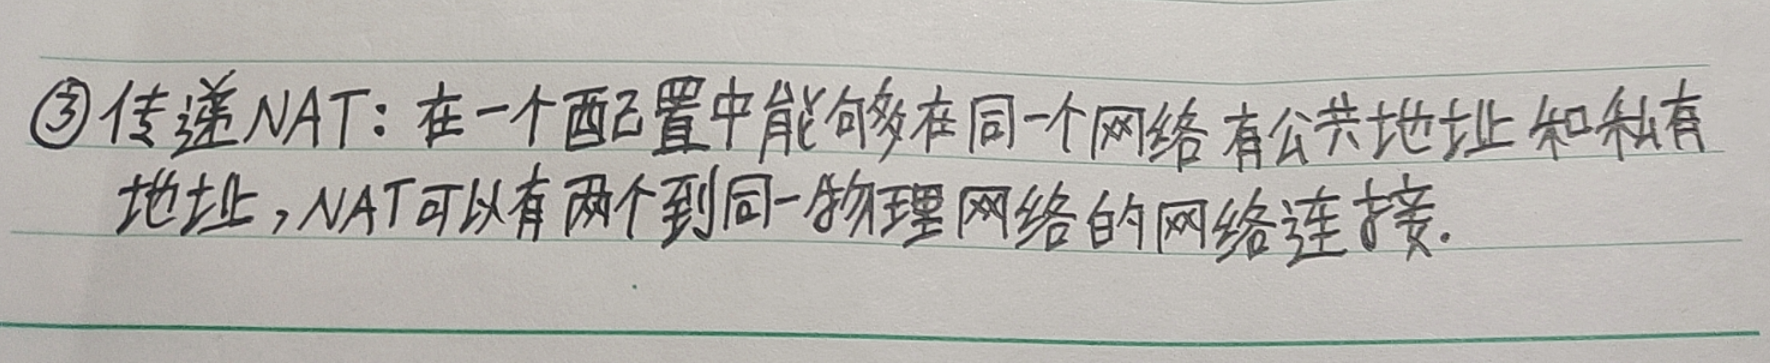 ③传递NAT：在一个配置中能够在同一个网络有公共地址和私有
地址，NAT可以有两个到同一物理网络的网络连接.